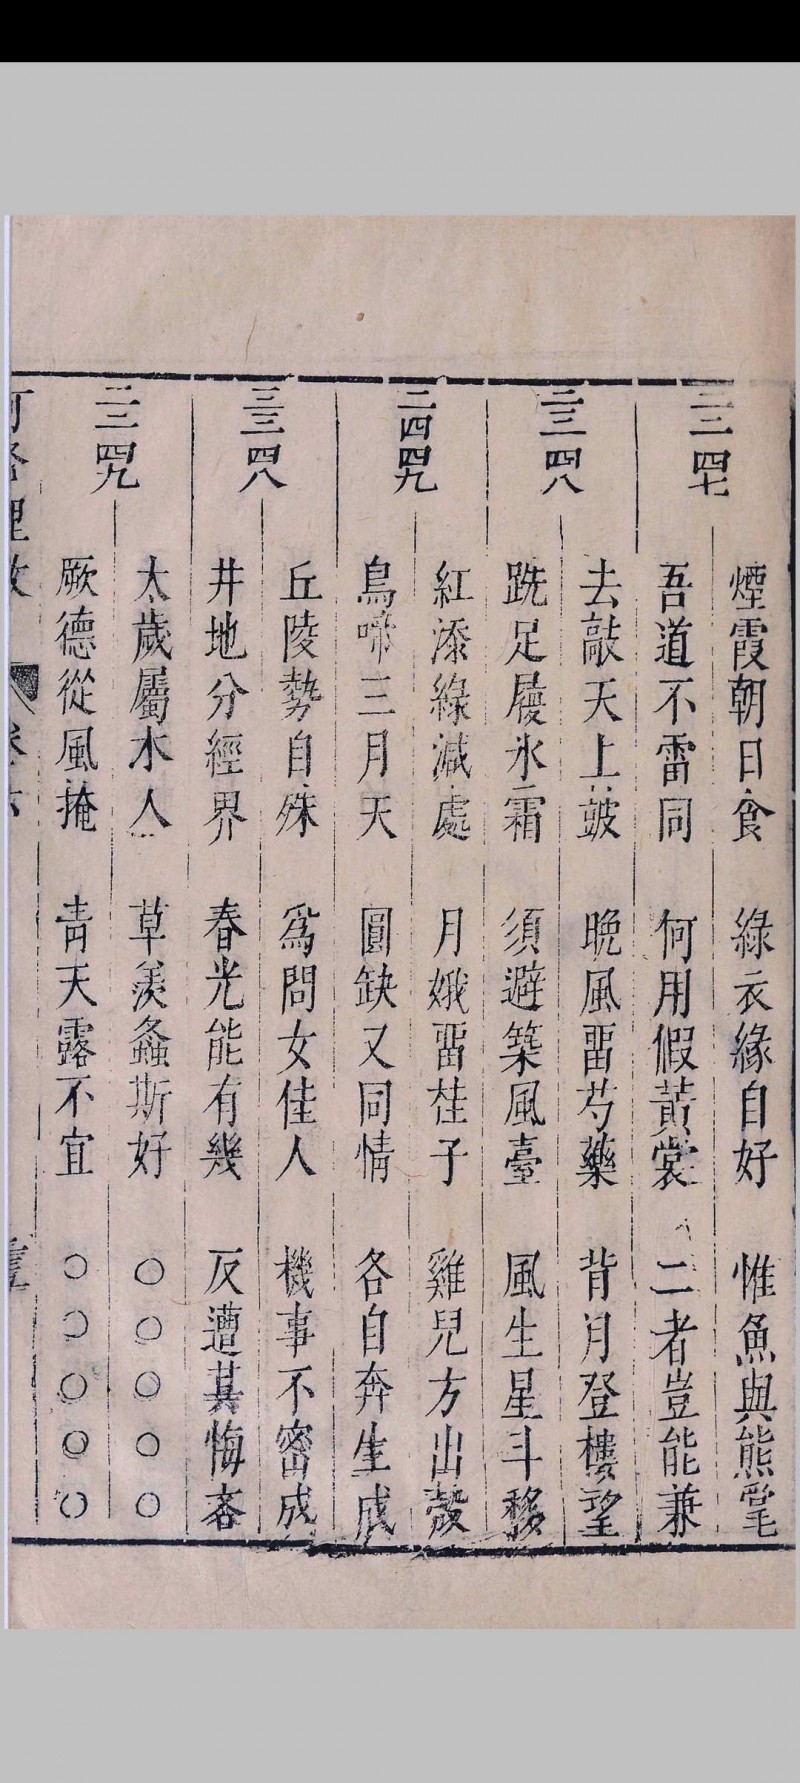 二三四七
煙霞朝日食 綠衣緣自好 惟魚與熊掌
吾道不雷同 何用假黃裳 二者豈能兼
三三四八
去敲天上鼓 晚風畱芍藥 背月登樓望
跣足履氷霜 須避築風臺 風生星斗移
二四四九
紅添綠減處 月娥畱桂子 雞兒方出殼
鳥啼三月天 圓缺又同情 各自奔生成
三三四八
丘陵勢自殊 爲問女佳人 機事不密成
井地分經界 春光能有幾 反遭其悔吝
二三四九
太歲屬木人 草羨螽斯好 ○○○○○
厥德從風掩 青天露不宜 ○○○○○